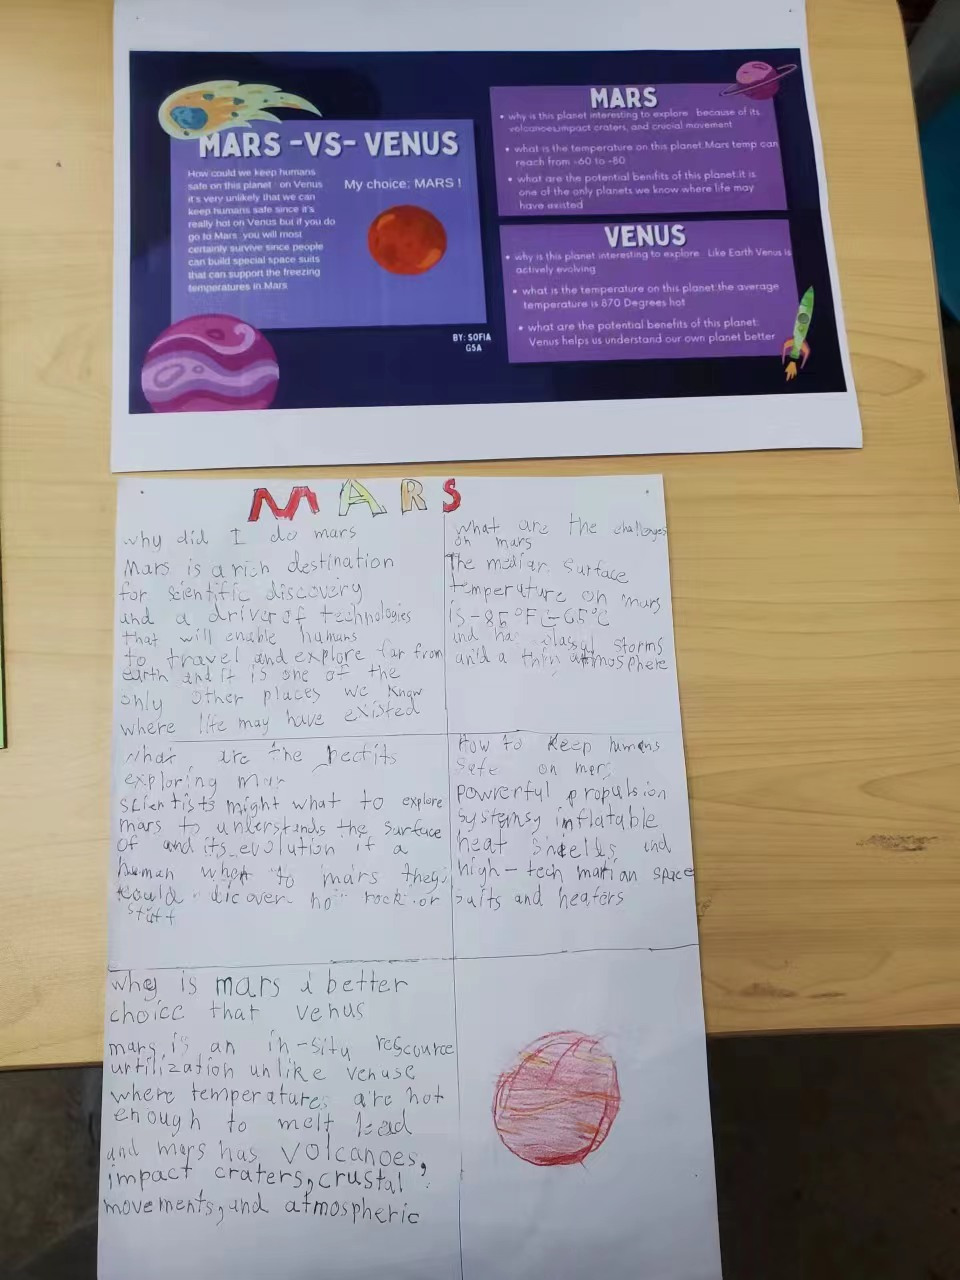 MARS -VS- VENUS
How could we keep humans
safe on this planet : on Venus
it's very unlikely that we can
keep humans safe since it's
really hot on Venus but if you do
go to Mars you will most
certainly survive since people
can build special space suits
that can support the freezing
temperatures in Mars
My choice: MARS !
BY: SOFIA
G5A
MARS
• why is this planet interesting to explore because of its
volcanoes,impact craters, and crucial movement
• what is the temperature on this planet.Mars temp can
reach from -60 to -80
• what are the potential benifits of this planet.it is
one of the only planets we know where life may
have existed
VENUS
• why is this planet interesting to explore Like Earth Venus is
actively evolving
• what is the temperature on this planet.the average
temperature is 870 Degrees hot
• what are the potential benefits of this planet:
Venus helps us understand our own planet better
MARS
why did I do mars
Mars is a rich destination
for scientific discovery
and a driver of technologies
that will enable humans
to travel and explore far from
earth and it is one of the
only other places we know
where life may have existed
What are the challenges
on mars
The median surface
temperature on mars
is -85°F -65°C
and has storms
and a thin atmosphere
what are the
exploring
scientists might what to explore
mars to understands the surface
of and its evolution if a
human to mars they
could discover rock or
stuff
How to keep humans
safe on mars
powerful propulsion
systems inflatable
heat and
high-tech martian space
suits and heaters
why is mars a better
choice that venus
mars is an in-situ rescource
urtilization unlike venuse
where temperature are hot
enough to melt lead
and mars has volcanoes,
impact craters, crustal
movements, and atmospheric